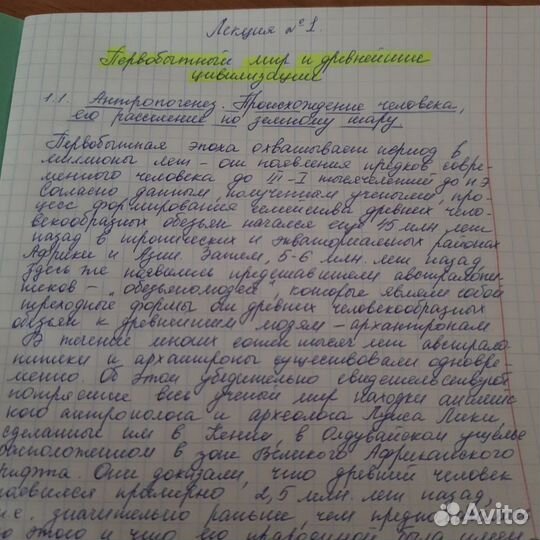 Лекция №1.
Первобытный мир и древнейшие
цивилизации
1.1. Антропогенез. Происхождение человека,
его расселение по земному шару
Первобытная эпоха охватывает период в
миллионы лет - от появления предков совре-
менного человека до III-I тысячелетий до н.э
Согласно данным, полученным учеными, про-
цесс формирования семейства древних чело-
векообразных обезьян начался ещё 45 млн. лет
назад в тропических и экваториальных районах
Африки и Азии. Затем, 5-6 млн. лет назад
здесь же появились представители австралопи-
теков - "обезьянолюдей", которые являли собой
переходные формы от древних человекообразных
обезьян к древнейшим людям - архантропам
В течение многих сотен тысяч лет австрало-
питеки и архантропы существовали одновре-
менно. Об этом убедительно свидетельствуют
потрясшие весь ученый мир находки английс-
кого антрополога и археолога Луиса Лики,
сделанные им в Кении, в Олдувайском ущелье
расположенном в зоне Великого Африканского
рифта. Они доказали, что древний человек
появился примерно 2,5 млн. лет назад,
т.е. значительно раньше, чем
этого и что его прародиной была
Avito